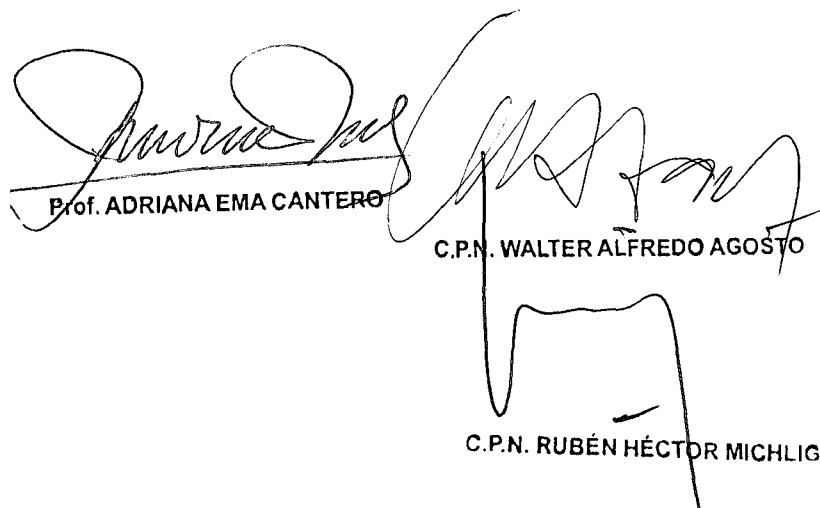 Prof. ADRIANA EMA CANTERO
C.P.N. WALTER ALFREDO AGOSTO
C.P.N. RUBÉN HÉCTOR MICHLIG